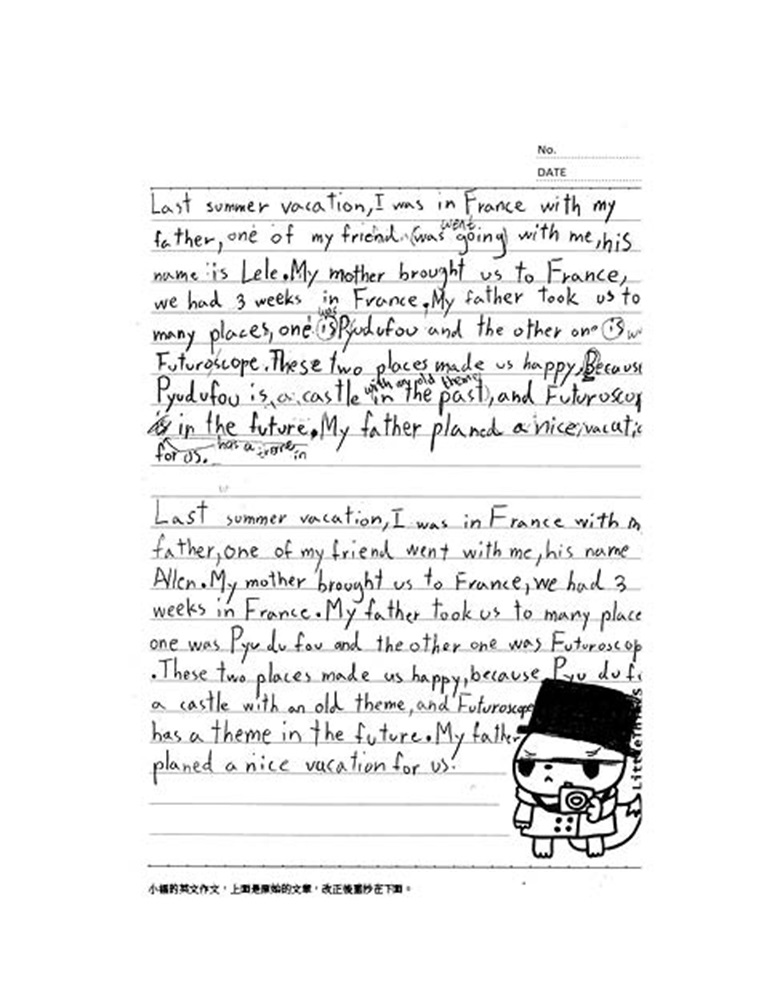 No.
DATE
Last summer vacation, I was in France with my
went
father, one of my friend (was going) with me, his
name is Lele. My mother brought us to France,
we had 3 weeks in France. My father took us to
was
many places, one is Pyudufou and the other one is
Futuroscope. These two places made us happy, Becaus
with an old theme
Pyudufou is a castle in the past, and Futuroscop
is in the future. My father planed a nice vacatio
for us. has a theme in
Last summer vacation, I was in France with m
father, one of my friend went with me, his name
Allen. My mother brought us to France, we had 3
weeks in France. My father took us to many place
one was Pyu du fou and the other one was Futuroscop
. These two places made us happy, because Pyu du f
a castle with an old theme, and Futuroscope
has a theme in the future. My father
planed a nice vacation for us.
LittleThings
小福的英文作文，上面是原始的文章，改正後重抄在下面。